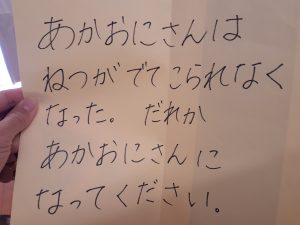 あかおにさんは
ねつがでてこられなく
なった。 だれか
あかおにさんに
なってください。